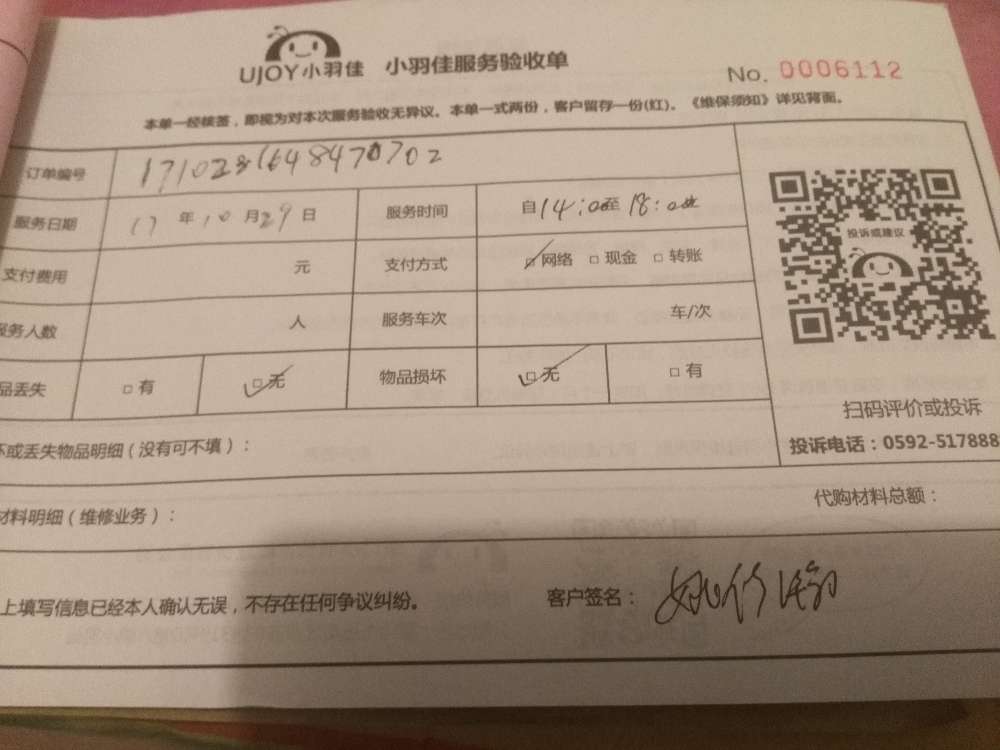 UJOY小羽佳 小羽佳服务验收单
No. 0006112
本单一经核签，即视为对本次服务验收无异议。本单一式两份，客户留存一份(红)。《维保须知》详见背面。
订单编号
服务日期 17 年 10 月 29 日 服务时间 自14:00至18:00
投诉或建议
支付费用 元 支付方式 □ 网络 □ 现金 □ 转账
务人数 人 服务车次 车/次
品丢失 □ 有 □ 无 物品损坏 □ 无 □ 有
扫码评价或投诉
投诉电话：0592-517888
或丢失物品明细（没有可不填）：
材料明细（维修业务）： 代购材料总额：
上填写信息已经本人确认无误，不存在任何争议纠纷。 客户签名：